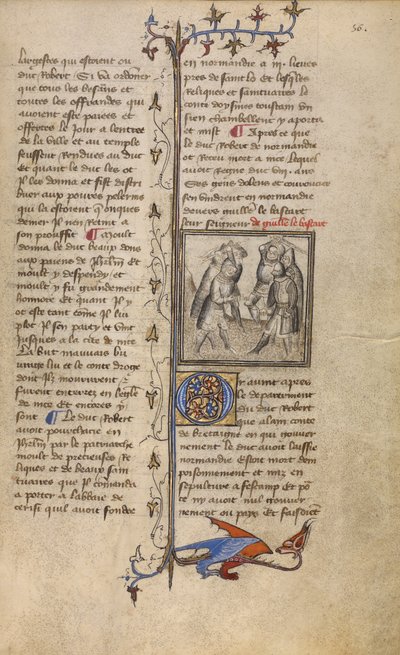 56.
largesses qui estoient ou
duc Robert Si va ordoner
que tous les besans et
toutes les offrandes qui
avoient este paiees et
offertes le jour a lentree
de la ville et au temple
feussent Rendues au duc
Et quant le duc les ot
Il les donna et fist distri
buer aux poures pelerins
qui la estoient Et onques
denier Il nen Retint a
son prouffit ¶ Moult
donna le duc beaux dons
aux paiens de Jhrlm Et
moult y despendy et
moult y fu grandement
honnore Et quant Il y
ot este tant come Il lui
plot Il sen party et vint
Jusques a la cite de nice
La but mauvais bu
urage lui et le conte droge
dont Ilz moururent
furent enterrez en leglise
de nice et encores y
sont ¶ Le duc Robert
avoit pourchacie en
Jhrlm par le patriarche
moult de precieuses Re
liques et de beaux sain
tuaires que Il comanda
a porter a labbaie de
cerisi quil avoit fondee
en normandie a iij. lieues
pres de saint lo Et lesqles
Reliques et saintuaires le
conte doysmes toustain un
sien chambellent y aporta
et mist ¶ Apres ce que
le duc Robert de normandie
ot Receu mort a nice Lequel
avoit Regne duc viij. ans
Ses gens dolens et couroucies
sen vindrent en normandie
devers guille le bastart
leur seigneur de guille le bastart
Or avint apres
le departement
du duc Robert
que alain conte
de bretaigne en qui gouver
nement le duc avoit laissie
normandie Estoit mort den
poisonnement et mis en
sepulture a fescamp Et po
ce ny avoit nul gouver
nement ou pays Et faisoient